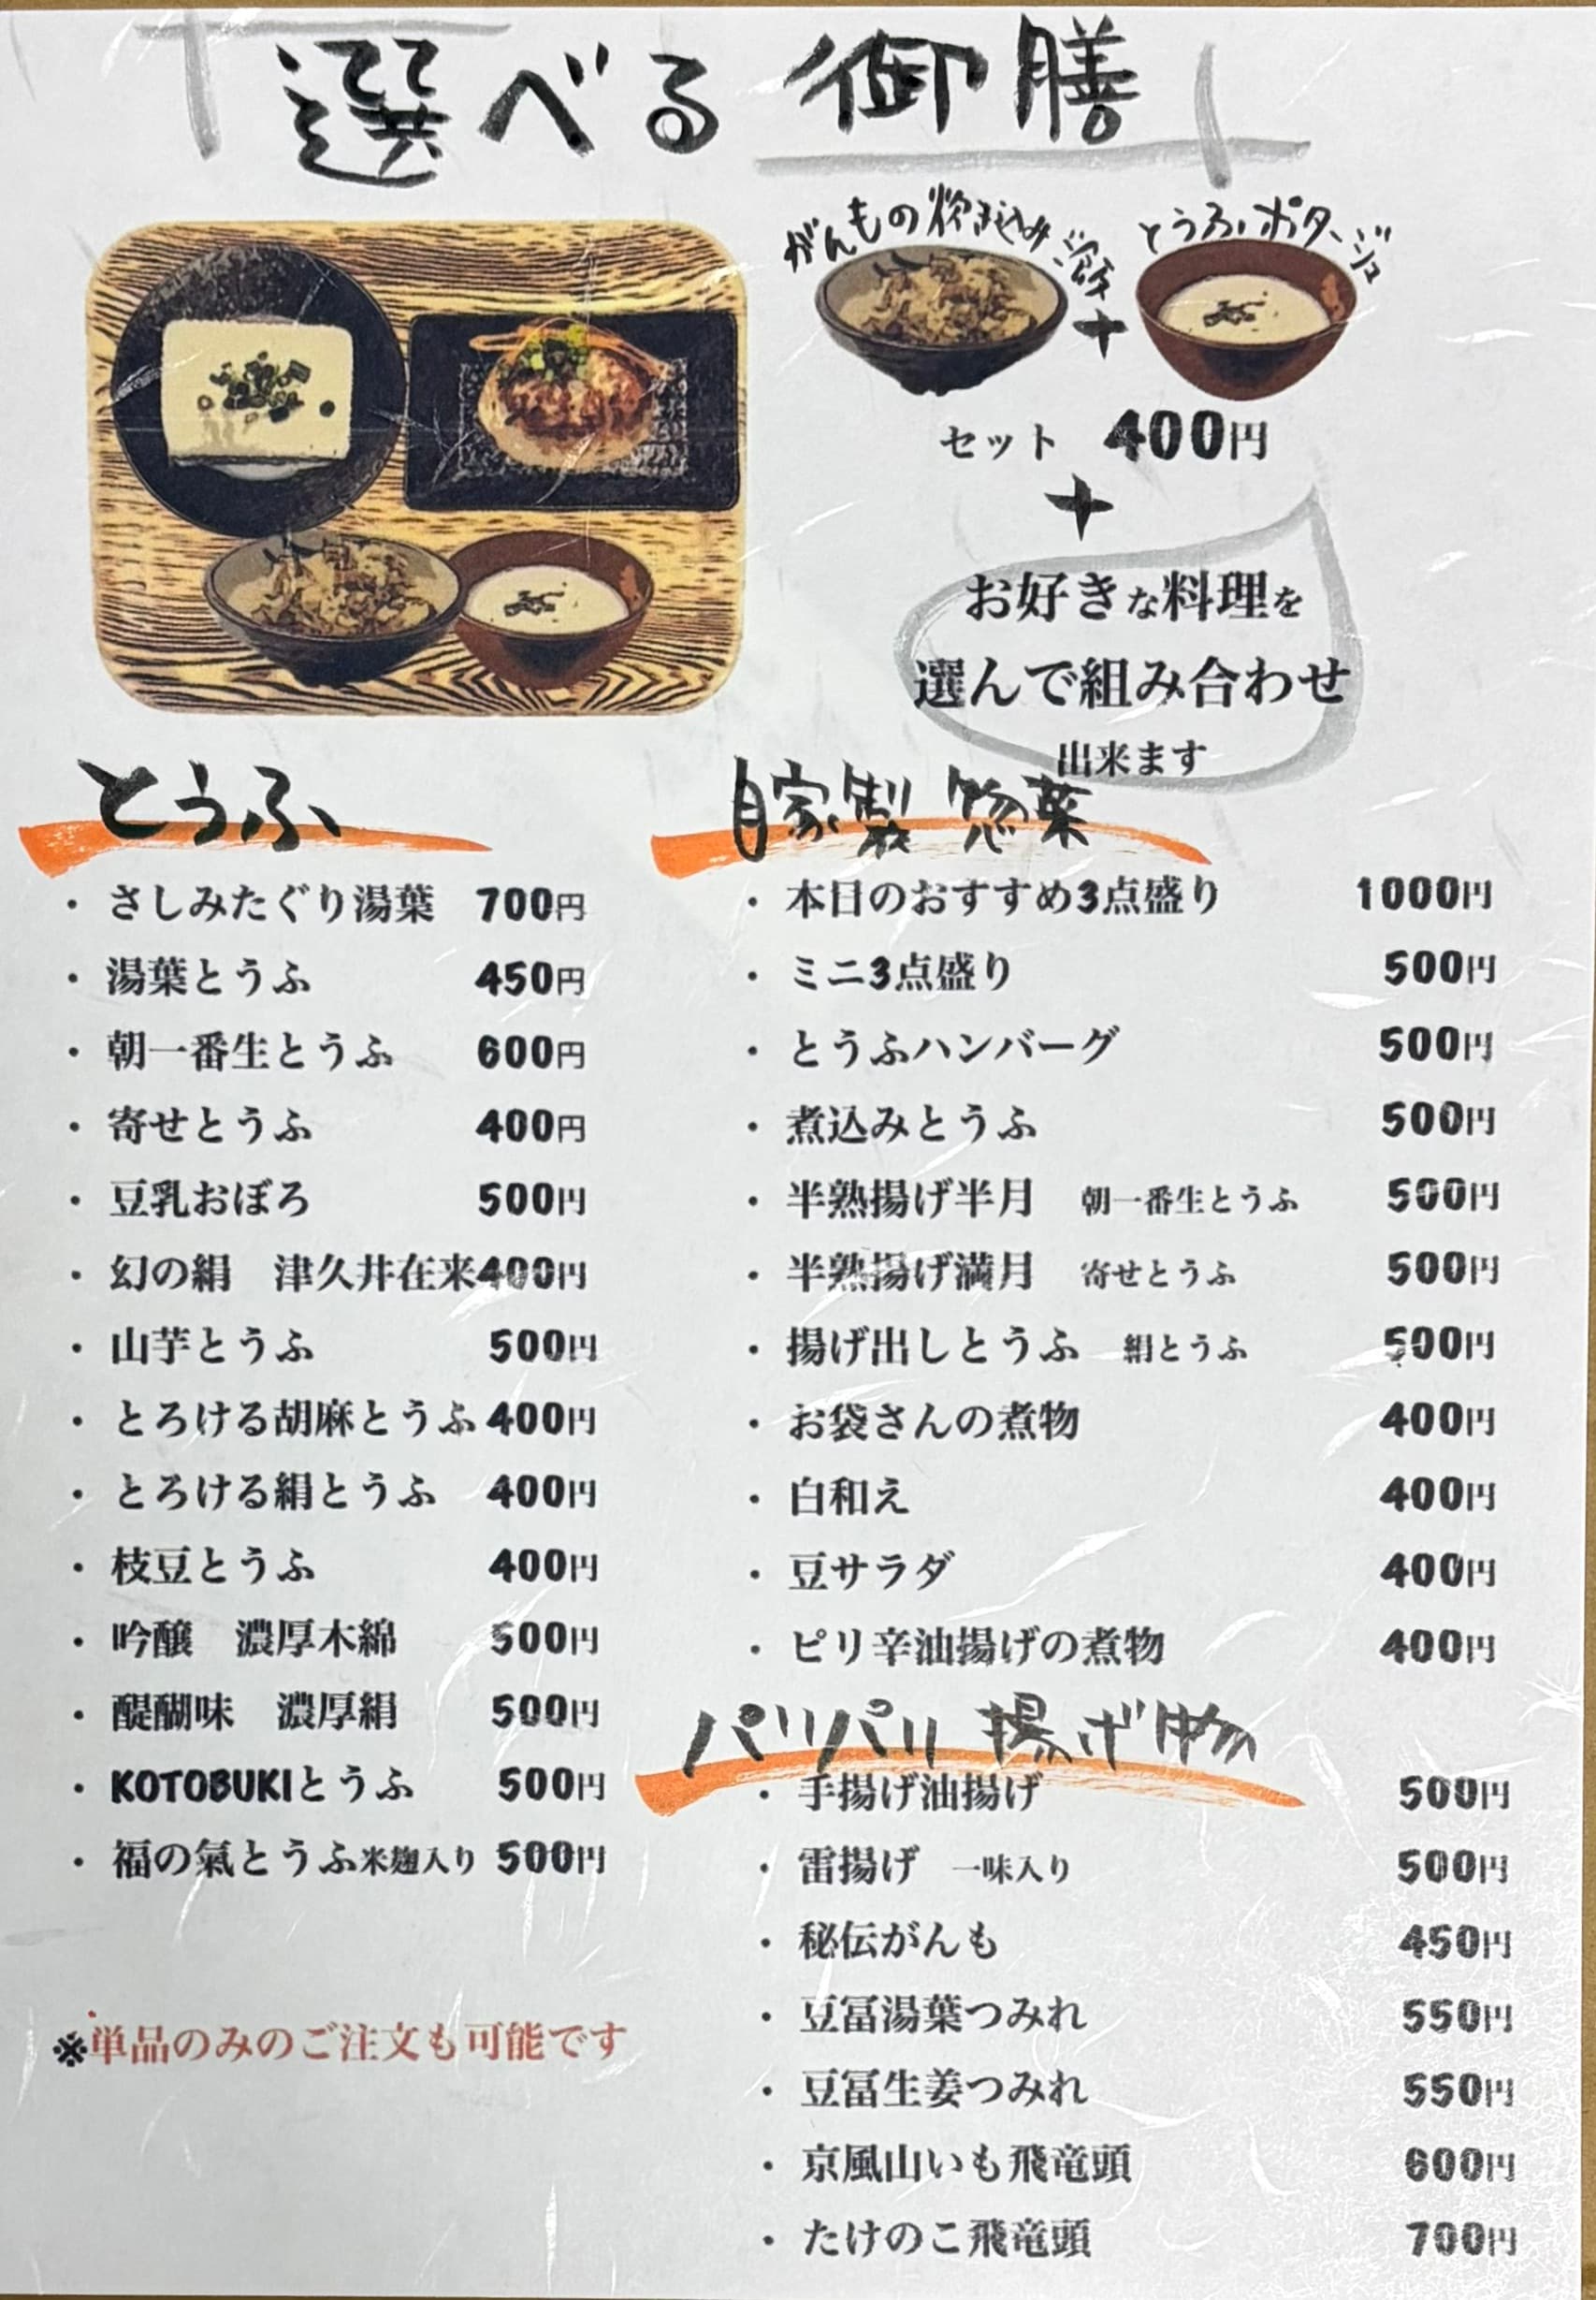 選べる御膳
がんもの炊き込みご飯
+
とうふポタージュ
セット 400円
+
お好きな料理を
選んで組み合わせ
出来ます
とうふ
・さしみたぐり湯葉 700円
・湯葉とうふ 450円
・朝一番生とうふ 600円
・寄せとうふ 400円
・豆乳おぼろ 500円
・幻の絹 津久井在来400円
・山芋とうふ 500円
・とろける胡麻とうふ 400円
・とろける絹とうふ 400円
・枝豆とうふ 400円
・吟醸 濃厚木綿 500円
・醍醐味 濃厚絹 500円
・KOTOBUKIとうふ 500円
・福の氣とうふ米麹入り 500円
※単品のみのご注文も可能です
自家製惣菜
・本日のおすすめ3点盛り 1000円
・ミニ3点盛り 500円
・とうふハンバーグ 500円
・煮込みとうふ 500円
・半熟揚げ半月 朝一番生とうふ 500円
・半熟揚げ満月 寄せとうふ 500円
・揚げ出しとうふ 絹とうふ 500円
・お袋さんの煮物 400円
・白和え 400円
・豆サラダ 400円
・ピリ辛油揚げの煮物 400円
パリパリ揚げ物
・手揚げ油揚げ 500円
・雷揚げ 一味入り 500円
・秘伝がんも 450円
・豆冨湯葉つみれ 550円
・豆冨生姜つみれ 550円
・京風山いも飛竜頭 600円
・たけのこ飛竜頭 700円